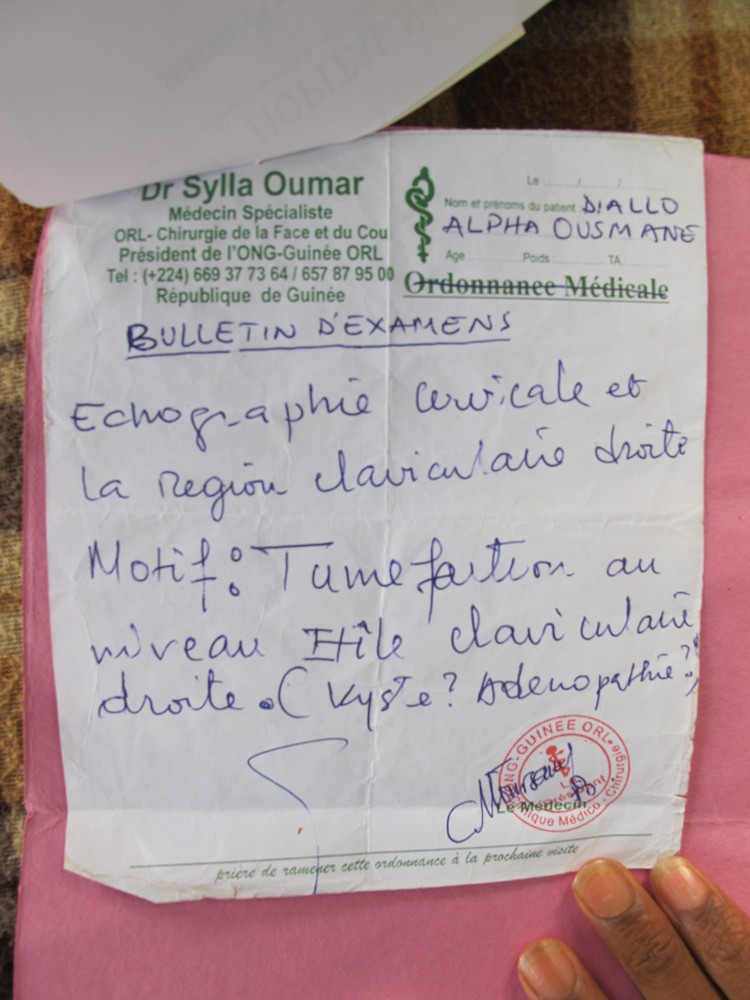 HOPITAL NA
Dr Sylla Oumar
Médecin Spécialiste
ORL- Chirurgie de la Face et du Cou
Président de l'ONG-Guinée ORL
Tel : (+224) 669 37 73 64 / 657 87 95 00
République de Guinée
Le ..... / ..... / .....
Nom et prénoms du patient DIALLO
ALPHA OUSMANE
Age ..... Poids ..... TA .....
Ordonnance Médicale
BULLETIN D'EXAMENS
Echographie cervicale et
la region claviculaire droite
Motif : Tumefaction au
niveau claviculaire
droite. ( Kyste ? Adenopathie ?)
ONG-GUINEE ORL
Clinique Médico-Chirurgie
Le Médecin
prière de ramener cette ordonnance à la prochaine visite